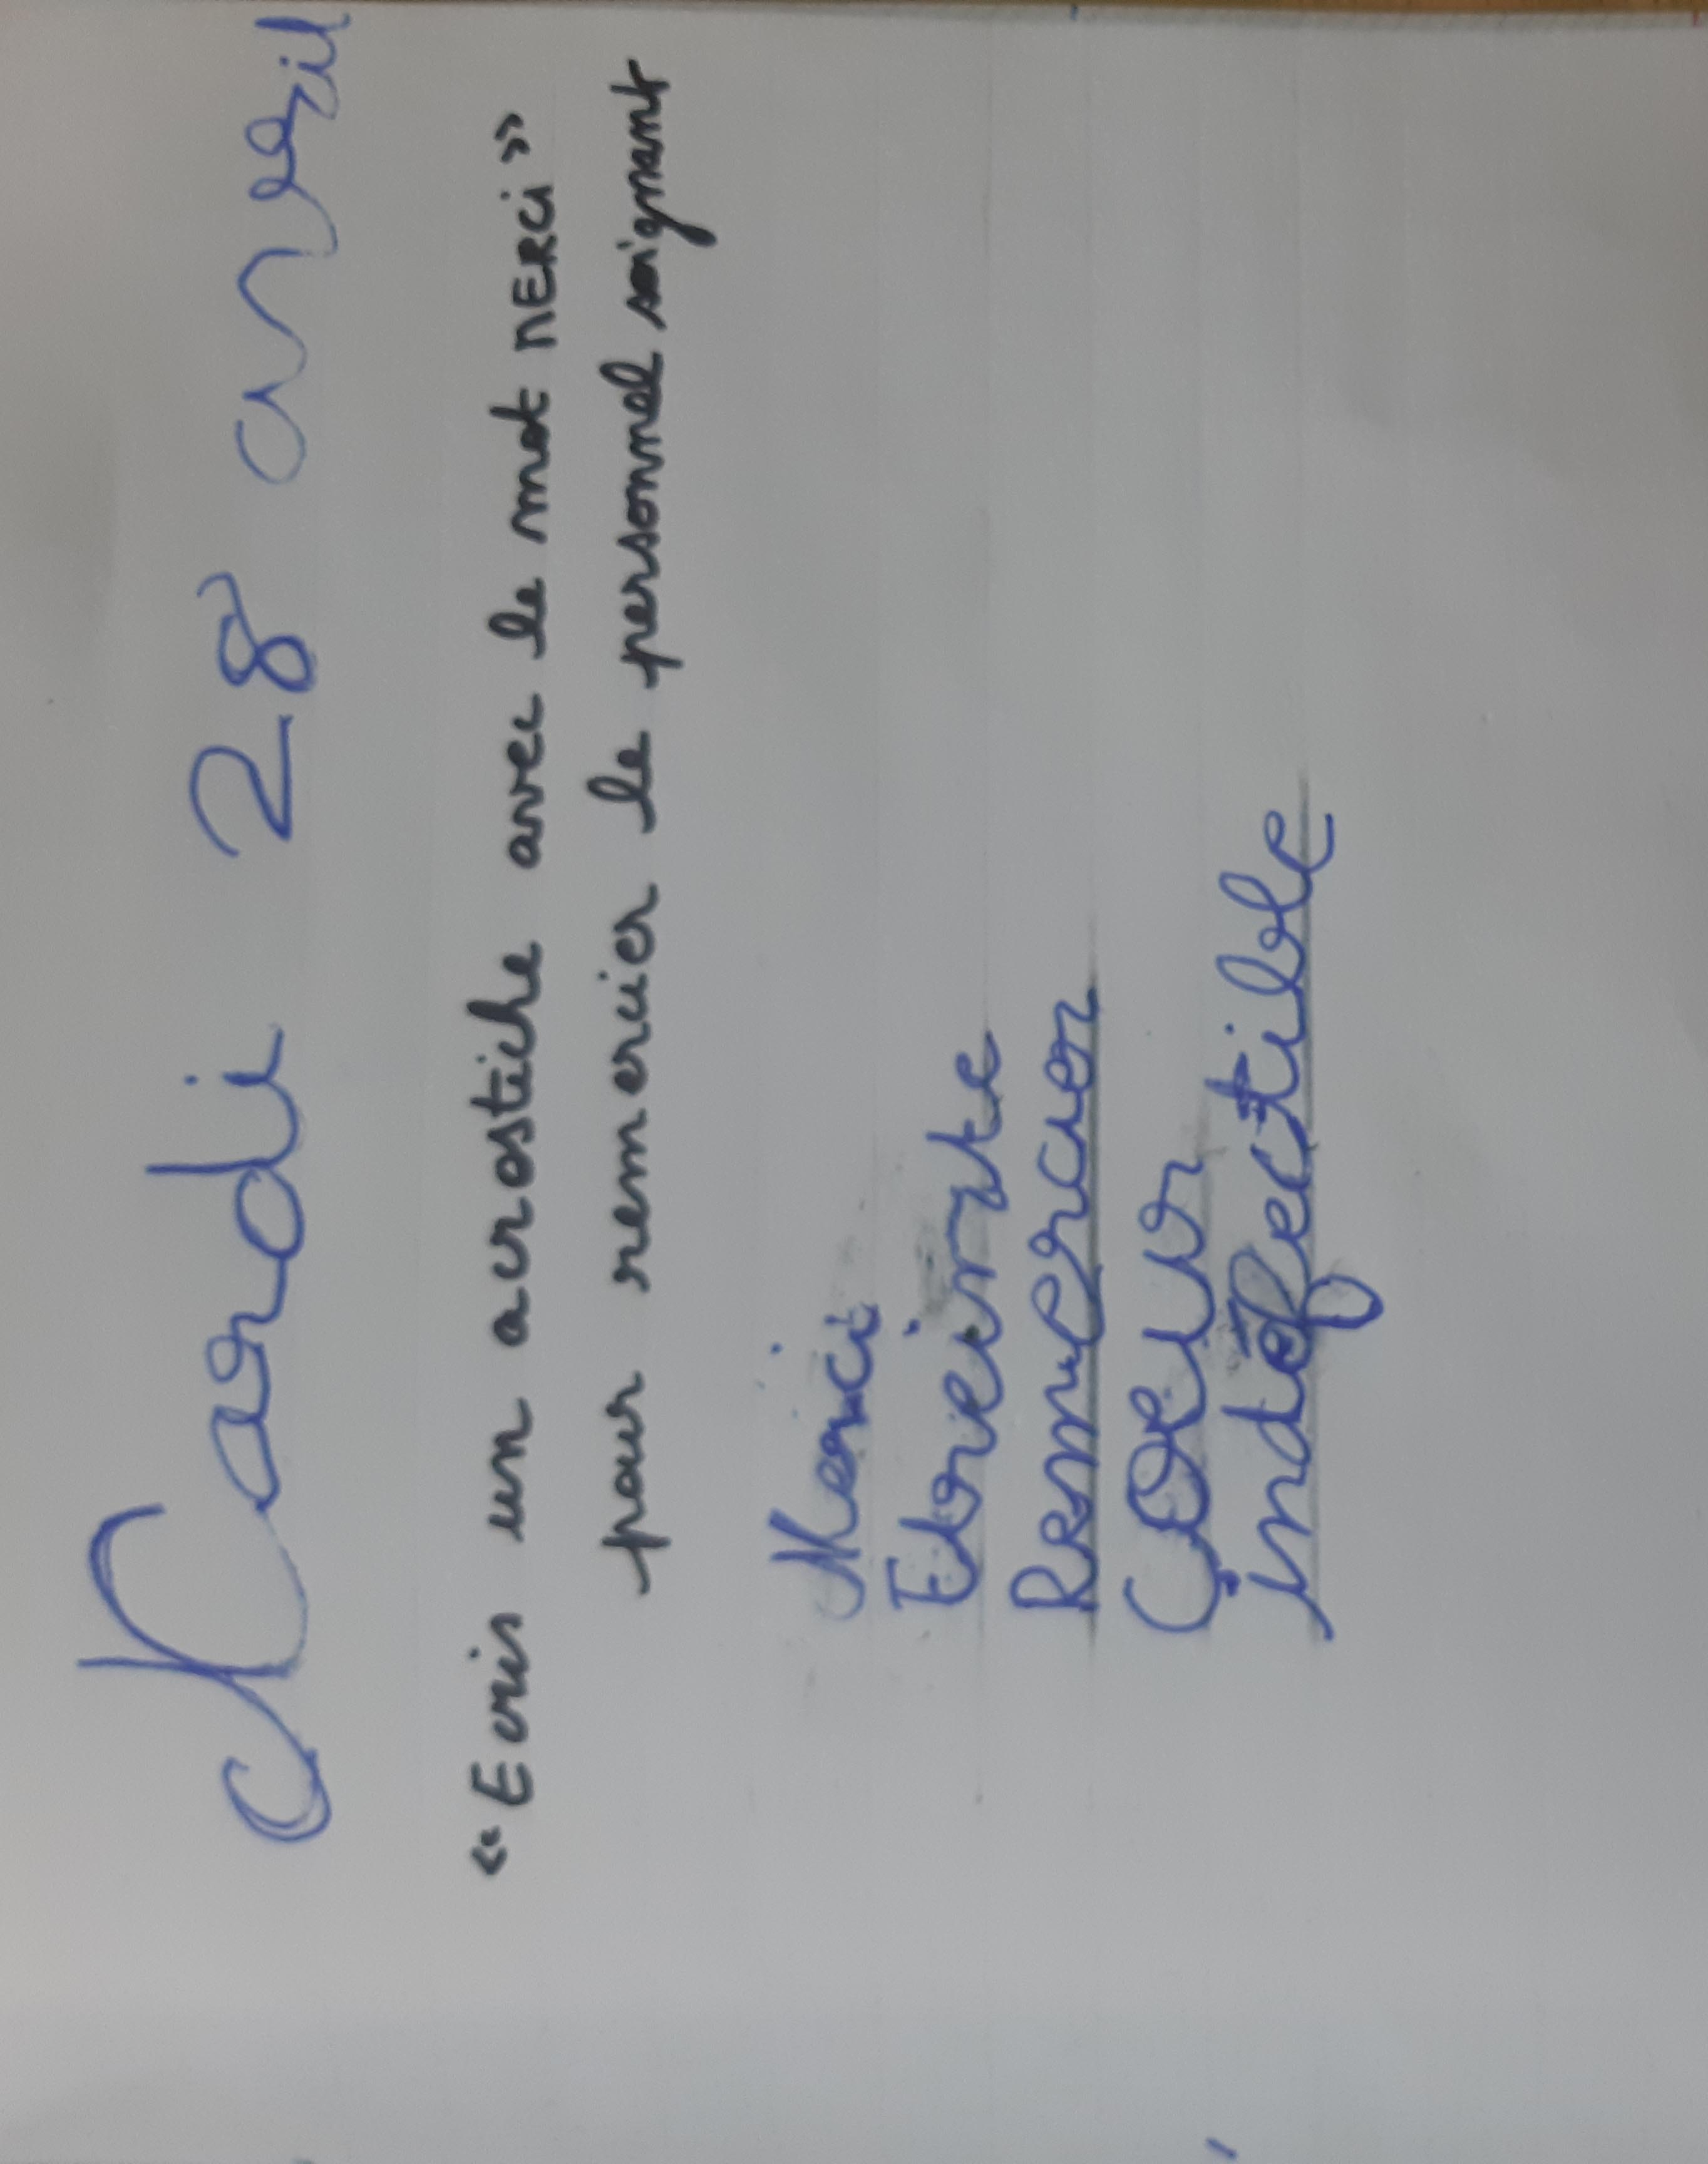 Mardi 28 avril
« Ecris un acrostiche avec le mot MERCi »
pour remercier le personnel soignant
Merci
Remercier
Coeur
indéfectible